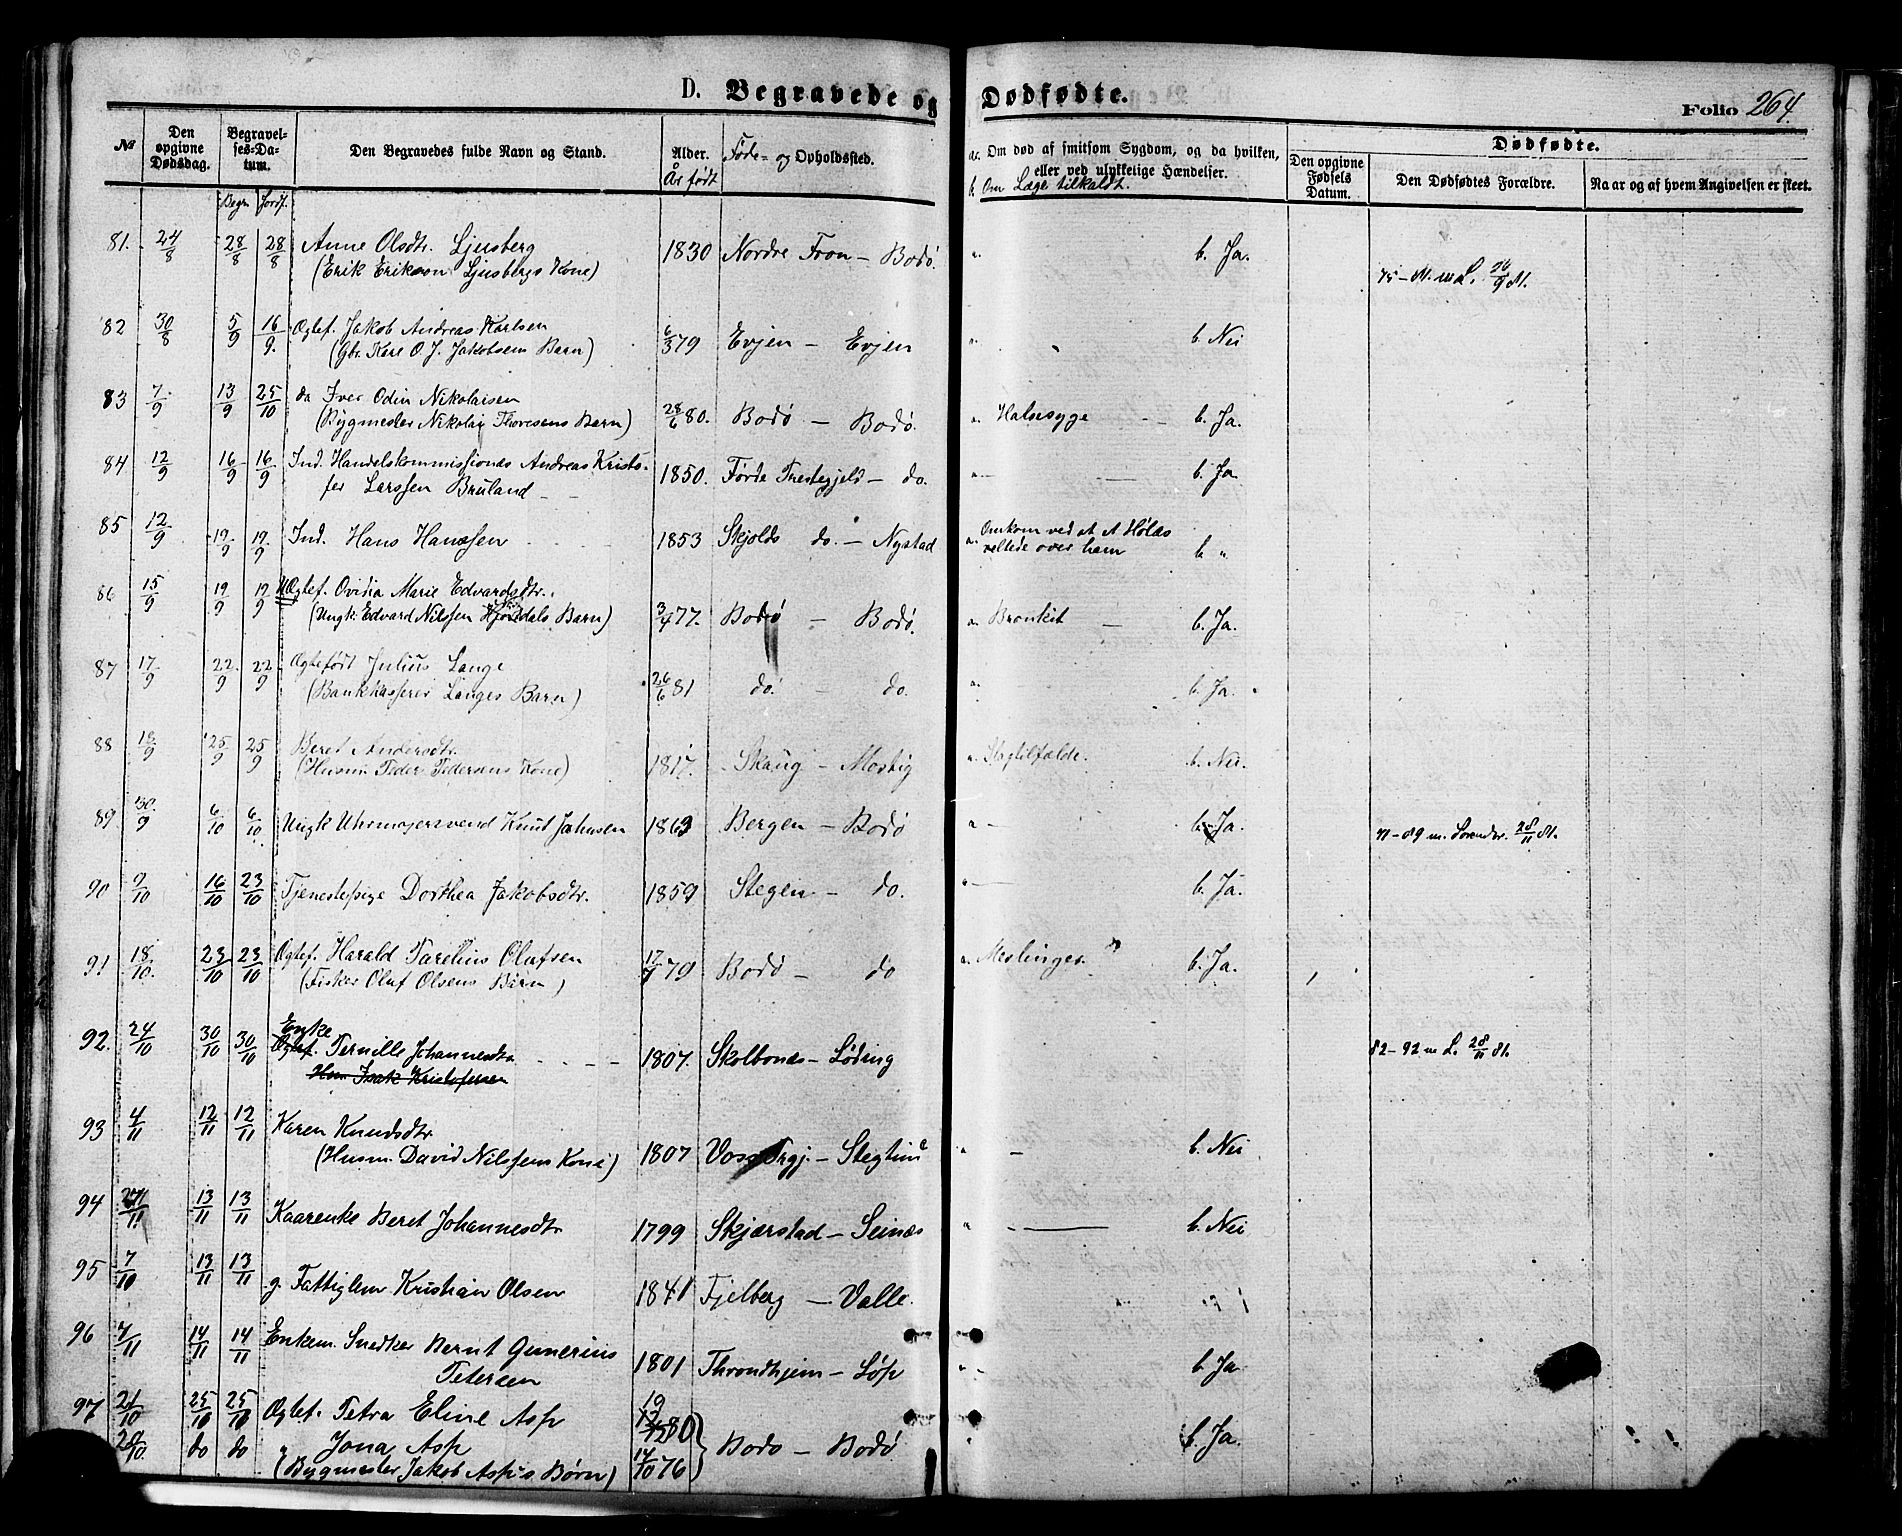 D. Begravede og Dødfødte.
Folio 264
№ Den opgivne Dødsdag. Begravel-ses-Da-tum. Den Begravedes fulde Navn og Stand. Alder. År født Føde- og Opholdssted. a. Om død af smitsom Sygdom, og da hvilken, eller ved ulykkelige Hændelser. b. Om Læge tilkaldt. Dødfødte. Den opgivne Fødsels Datum. Den Dødfødtes Forældre. Naar og af hvem Angivelsen er skeet.
Begr. Jordf.
81. 24/8 28/8 28/8 Anne Olsdtr. Ljusberg 1830 Nordre Fron - Bodø. a. b. Ja.
(Erik Erikson Ljusbergs Kone) 75-81. m L. 26/9 81.
82 30/8 5/9 16/9. Ægtef. Jakob Andreas Karlsen 6/3 79 Evjen - Evjen a. b. Nei
(Gbr. Karl O. J. Jakobsens Barn)
83 7/9 13/9 25/10 do Iver Odin Nikolaisen 28/6 80. Bodø - Bodø. a. Halssyge b. Ja.
(Bygmester Nikolai Thoresens Barn)
84 12/9 16/9 16/9 Ind. Handelskommissionær Andreas Kristo- 1850. Førde Prestegjeld - do. a. b. Ja.
fer Larssen Bruland
85 12/9 19/9 19/9 Ind. Hans Hanssen 1853 Skjolds do. - Nystad a. Omkom ved at et Hølæs
veltede over ham b. "
86 15/9 19/9 19/9 UÆgtef. Ovidia Marie Edvardsdtr. 3/4 77. Bodø - Bodø. a. Bronkit b. Ja.
(Ungk. Edvard Nilssen Hjortdals Barn)
87 17/9 22/9 22/9 Ægtefødt Julius Lange 26/6 81 do. - do. a. b. Ja.
(Bankkasserer Langes Barn)
88 18/9 25/9 25/9 Beret Andersdtr. 1817. Skaug - Mostig a. Slagtilfælde. b. Nei.
(Husm. Peder Pedersens Kone)
89 30/9 6/10 6/10. Ungk Uhrmagersvend Knut Johnsen 1863 Bergen - Bodø a b. Ja. 71-89 m. 28/11 81.
90 9/10 16/10 23/10 Tjenestepige Dorthea Jakobsdtr. 1859 Stegen - do. a b. Ja.
91 18/10. 23/10 23/10 Ægtef. Harald Parelius Olufsen 17/7 79 Bodø - do a. Meslinger b. Ja.
(Fisker Oluf Olsens Barn)
92. 24/10 30/10 30/10 Enke Pernille Johannesdtr 1807. Skolbones - Løding 82-92 m L. 28/11 81.
Hm Isak Kristofersen
93 4/11 12/11 12/11 Karen Knudsdtr
(Husm. David Nilssens Kone) 1807 Voss Prgj. - Stegtun b. Nei
94 13/11 13/11 Kaarenke Beret Johannesdtr 1799 Skjærstad - Seinæs a b. Nei
95 7/10 13/11 13/11 g. Fattiglem Kristian Olsen 1841 Fjelberg - Valle.
96 7/11 14/11 14/11 Enkem. Snedker Bernt Gunerius 1801 Throndhjem - Løp b. Ja.
Petersen
97 21/10 25/10 25/10 Ægtef. Petra Eline Asp 19/12 80 Bodø - Bodø b. Ja.
do do " Jona Asp
(Bygmester Jakob Asps Børn) 14/10 76